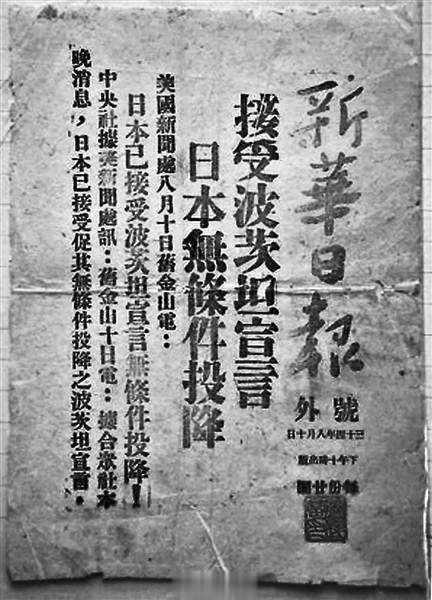 新華日報
號外
三十四年八月十日
下午十時出版
每份廿圓
接受波茨坦宣言
日本無條件投降
美國新聞處八月十日舊金山電：
日本已接受波茨坦宣言無條件投降！
中央社據美新聞處訊：舊金山十日電：據合衆社本
晚消息，日本已接受促其無條件投降之波茨坦宣言。